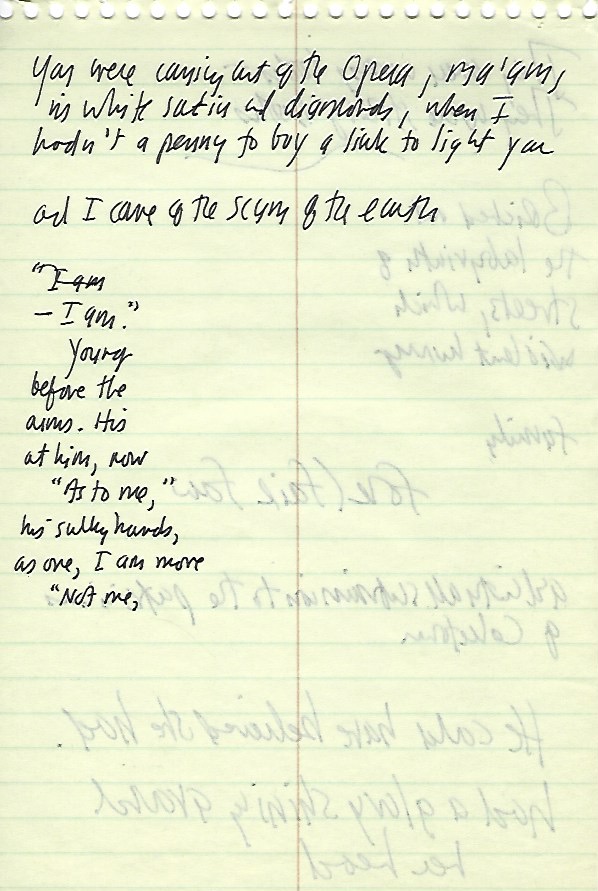 You were coming out of the Opera, ma'am,
in white satin and diamonds, when I
hadn't a penny to buy a link to light you
and I come of the scum of the earth
"I am
– I am."
Young
before the
arms. His
at him, now
"As to me,"
his sulky hands,
as one, I am more
"Not me,